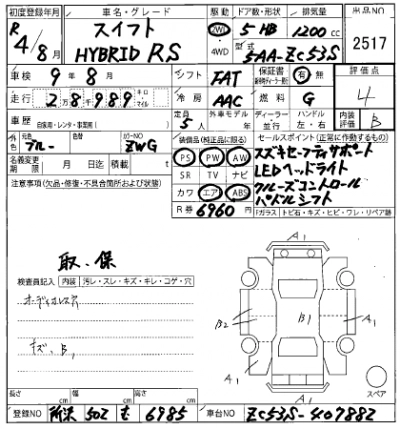 初度登録年月 車名・グレード 駆動 ドア数・形状 排気量 出品NO
R4年/8月 スイフト HYBRID RS 2WD 4WD 5 HB 1200cc 2517
型式 5AA-ZC53S
車検 9年8月 シフト FAT 保証書 有・無 評価点 4
走行 28,989 キロ マイル 冷房 AAC 燃料 G
車歴 自家用・レンタ・事業用( ) 定員 5人 外車モデル 年 ディーラー 並行 ハンドル 左・右 内装評価 B
外色 元色 ブルー カラーNO ZWG 装備品(純正品に限る) セールスポイント(正常に動作するもの)
名義変更期限 月 日迄 積載 t PS PW AW スズキセーフティサポート
SR TV ナビ LEDヘッドライト
注意事項(欠品・修復・不具合箇所および状態) カワ エア ABS クルーズコントロール
R券 6960円 パドルシフト
Fガラス トビ石・キズ・ヒビ・ワレ・リペア跡
取・保
検査員記入 内装 汚レ・スレ・キズ・キレ・コゲ・穴
オーディオレス穴
キズ、B1
A1
B2 B1 A1
A1 A1
A1
スペア
長さ cm 幅 cm 高さ cm
登録NO 所沢 502 そ 6985 車台NO ZC53S-407882